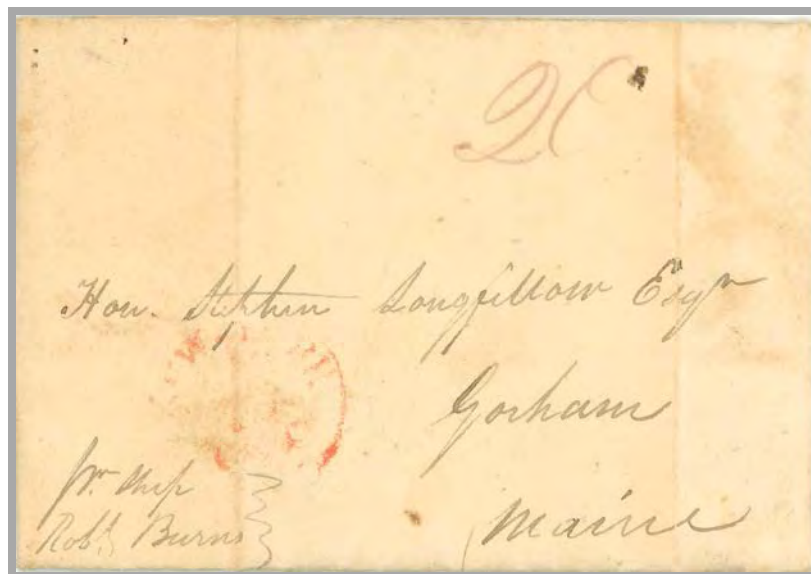 Hon. Stephen Longfellow Esqr
Gorham
Maine
pr. Ship
Robt Burns